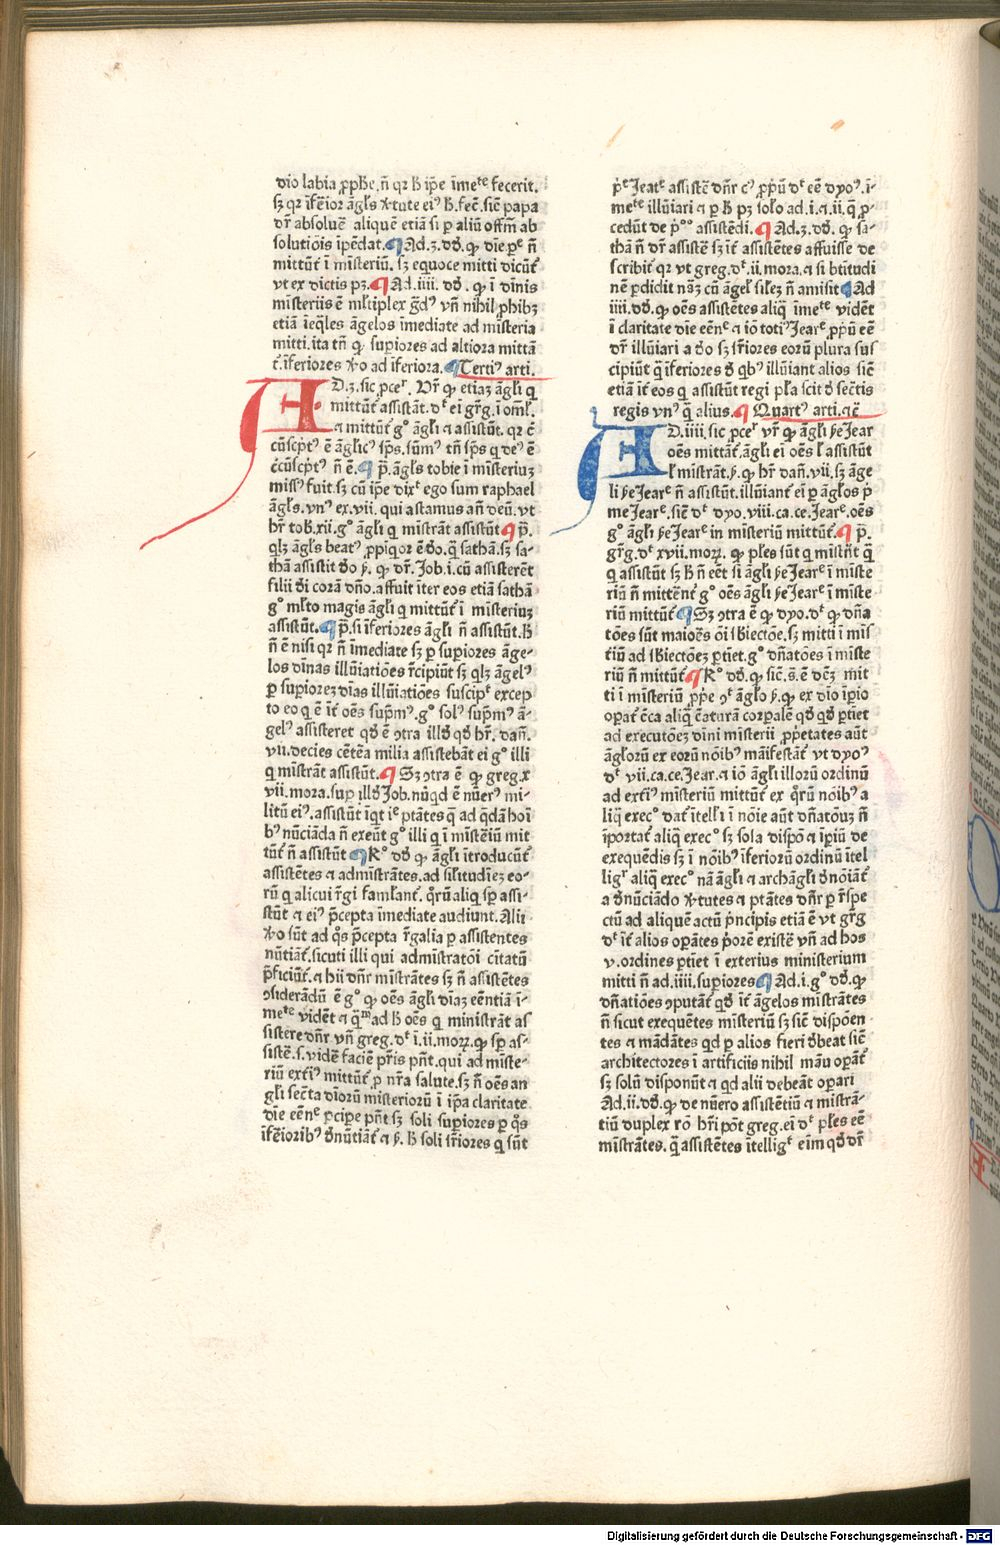 dio labia ꝓphe.ñ qꝛ ħ ip̄e īmeᵗᵉ fecerit.
sꝫ qꝛ īfēioꝛ āgl̄s ꝟtute eiꝰ ħ.fec̄.sic̄ papa
dr̄ absoluē aliquē etiā si ꝑ aliū offm̄ ab
solutiōis īpēdat.¶Ad.3.dō. ꝙ die ꝑᵉ ñ
mittūt̄ ī misteriū. sꝫ equoce mitti dicūt̄
vt ex dictis pꝫ.¶Ad.iiii. dō. ꝙ ī diinis
misteriis ē ml̄tiplex gdꝰ vñ nihil ꝓhibꝫ
etiā īeq̄les āgelos īmediate ad misteria
mitti.ita tñ ꝙ superiores ad altioꝛa mittā
t̄.īferioꝛes ꝟo ad īferioꝛa.¶Tertiꝰ arti.
AD.3.sic ꝓceʳ. Vr̄ ꝙ etiaꝫ āgl̄i q
mittūt̄ assistāt.dᵗ ei gr̄g.ī oml̄.
⁊ mittūt̄ gᵒ āgl̄i ⁊ assistūt. qꝛ c̄
cūsc̄ptꝰ ē āglicꝰ sp̄s.sūmꝰ tñ sp̄s q deꝰ ē
c̄cūsc̄ptꝰ ñ ē.¶p̄. āgl̄s tobie ī misteriuꝫ
missꝰ fuit.sꝫ cū ip̄e dixᵗ ego sum raphael
āgl̄s.vnꝰ ex.vii. qui astamus añ deū.vt
hr̄ tob.xii.gᵒ āgl̄i q mistrāt assistūt¶p̄.
qlꝫ āgl̄s beatꝰ ꝓpiqoꝛ ē do.q̄ sathā.sꝫ sa⸗
thā assistit do ꝑ. ꝙ dr̄. Job.i.cū assisterēt
filii di coꝛā dño.affuit iter eos etiā sathā
gᵒ ml̄to magis āgl̄i q mittūt̄ ī misteriuꝫ
assistūt.¶p̄.si īferioꝛes āgl̄i ñ assistūt.ħ
ñ ē nisi qꝛ ñ īmediate sꝫ ꝑ superioꝛes āge⸗
los diinas illūiatiōes r̄cipiūt sꝫ qlꝫ āgelꝰ
ꝑ superioꝛeꝫ dias illūiatiōes suscipᵗ excep
to eo q ē īt̄ oēs sup̄mꝰ.gᵒ solꝰ sup̄mꝰ ā⸗
gelꝰ assisteret qd ē ꝯtra illd qd hr̄. dañ.
vii.decies cētēa milia assistebāt ei gᵒ illi
q mistrāt assistūt.¶Sꝫ ꝯtra ē ꝙ greg.x
vii.moꝛa.suꝑ illd Job.nūqd ē nūerꝰ mi⸗
litū eiꝰ.assistūt īqt ie ptātes q̄ ad qdā hoī
bꝰ nūciāda ñ exeūt gᵒ illi q ī mistēiū mit
tūt̄ ñ assistūt ¶Rᵒ dō ꝙ āgl̄i itroducūt̄
assistētes ⁊ admistrātes.ad sil̄itudiēꝫ eo⸗
rū q alicui r̄gi faml̄ant̄. qꝛ̄ū aliq sꝑ assi⸗
stūt ⁊ eiꝰ p̄cepta īmediate audiunt.Alii
ꝟo sūt ad qs p̄cepta r̄galia ꝑ assistentes
nūtiāt̄.sicuti illi qui admistratōi citātū
p̄ficiūt̄.⁊ hii dñr mistrātes sꝫ ñ assistētes
ꝯsiderādū ē gᵒ ꝙ oēs āgl̄i diaꝫ eēntiā ī⸗
meᵗᵉ vidēt ⁊ qᵐad ħ oēs q ministrāt as
sistere dñr.vñ greg.dᵗ ī.ii.moꝛ.ꝙ sꝑ as⸗
sistē.s.vidē faciē pr̄is pñt.qui ad miste⸗
riū extiꝰ mittūt̄ ꝑ nr̄a salute.sꝫ ñ oēs an
gl̄i sec̄ta dioꝛū misterioꝛū ī ip̄a claritate
die eēnᵉ ꝑcipe pñt sꝫ soli superioꝛes ꝑ qs
īfēioꝛibꝰ dnūtiāt̄ ⁊ ꝑ. ħ soli īr̄ioꝛes q sūt
p̄ᵉ Jeaᵗᵉ assistē dñr cꝰ ꝓpū dᵗ eē dyoꝰ.ī⸗
meᵗᵉ illūiari ⁊ ꝑ ħ pꝫ solo ad.i.⁊.ii.q̄ ꝓ⸗
cedūt de p̄ᵒᵒ assistēdi.¶Ad.3.dō. ꝙ sa⸗
thā ñ dr̄ assistē sꝫ īt̄ assistētes affuisse de
scribit̄ qꝛ vt greg.dᵗ.ii.moꝛa.⁊ si btitudi
nē ꝑdidit nāꝫ cū āgel̄ sil̄eꝫ ñ amisit¶Ad
iiii.dō.ꝙ oēs assistētes aliq̄ īmeᵗᵉ vidēt
ī claritate die eēnᵉ ⁊ iō totiꝰ Jearᵉ.ꝓpū eē
dr̄ illūiari a do sꝫ īr̄ioꝛes eoꝛū plura sus
cipiūt q̄ īferioꝛes d qbꝰ illūiant alios sic̄
etiā īt̄ eos q assistūt regi pl̄a scit d sec̄tis
regis vnꝰ q̄ alius.¶Quartꝰ arti.⁊c̄
AD.iiii.sic ꝓceʳ vr̄ ꝙ āgl̄i ꝑe Jear
oēs mittāt̄.āgl̄i ei oēs l̄ assistūt
l̄ mistrāt.ꝑ.ꝙ hr̄ dañ.vii.sꝫ āge
li ꝑe Jearᵉ ñ assistūt.illūiant̄ ei ꝑ āgl̄os p̄
me Jearᵉ.sic̄ dᵗ dyo.viii.ca.ce.Jearᵉ.oēs
gᵒ āgl̄i ꝑe Jearᵉ in misteriū mittūt̄.¶p̄.
gr̄g.dᵗ xvii.moꝛ. ꝙ pl̄es sūt q mistrāt q̄
q assistūt sꝫ ħ ñ eēt si āgl̄i ꝑe Jearᵉ ī miste
riū ñ mittent̄ gᵒ oēs āgl̄i ꝑe Jearᵉ ī miste
riū mittūt̄¶Sꝫ ꝯtra ē ꝙ dyo.dᵗ ꝙ dña
tōes sūt maioēs ōi sbiectōe.sꝫ mitti ī mis
tiū ad sbiectōeꝫ ꝑtiet.gᵒ dñatōes ī miste
riū ñ mittūt̄¶Rᵒ dō.ꝙ sic̄.s.ē dc̄ꝫ mit
ti ī misteriū ꝓpe ꝯᵗ āglo ꝑ.ꝙ ex dio īꝑio
oꝑat̄ c̄ca aliq̄ c̄aturā coꝛꝑalē qd qd ꝑtiet
ad executōeꝫ diini misterii ꝓpetates aūt
āgl̄oꝛū ex eoꝛū nōibꝰ māifestāt̄ vt dyoꝰ
dᵗ vii.ca.ce.Jear.⁊ iō āgl̄i illoꝛū oꝛdinū
ad extiꝰ misteriū mittūt̄ ex qꝛ̄ū nōibꝰ a
liq̄ execᵒ dat̄ itell̄i ī nōie aūt dñatōuꝫ ñ
īpoꝛtat̄ aliq̄ execᵒ sꝫ sola dispō ⁊ īꝑiū de
exequēdis sꝫ ī nōibꝰ īferioꝛū oꝛdinū ītel
ligʳ aliq̄ execᵒ nā āgl̄i ⁊ archāgl̄i dnōiāt̄
a dnūciādo ꝟtutes ⁊ ptātes dñr ꝑ r̄spe
ctū ad aliquē actū p̄ncipis etiā ē vt gr̄g
dᵗ īt̄ alios oꝑātes p̄oꝛē existē vñ ad hos
v.oꝛdines ꝑtiet ī exterius ministerium
mitti ñ ad.iiii.superioꝛes¶Ad.i.gᵒ dō.ꝙ
dñatiōes ꝯputāt̄ qd īt̄ āgelos mistrātes
ñ sicut exequētes misteriū sꝫ sic̄ dispōen
tes ⁊ mādātes qd ꝑ alios fieri dbeat sic̄
architectoꝛes ī artificiis nihil manu oꝑāt̄
sꝫ solū disponūt ⁊ qd alii debeāt oꝑari
Ad.ii.dō.ꝙ de nūero assistētiū ⁊ mistrā⸗
tiū duplex rō hr̄i pōt greg.ei dᵗ pl̄es eē
mistrātes.q̄ assistētes ītelligᵗ eim qd dr̄
Digitalisierung gefördert durch die Deutsche Forschungsgemeinschaft - DFG